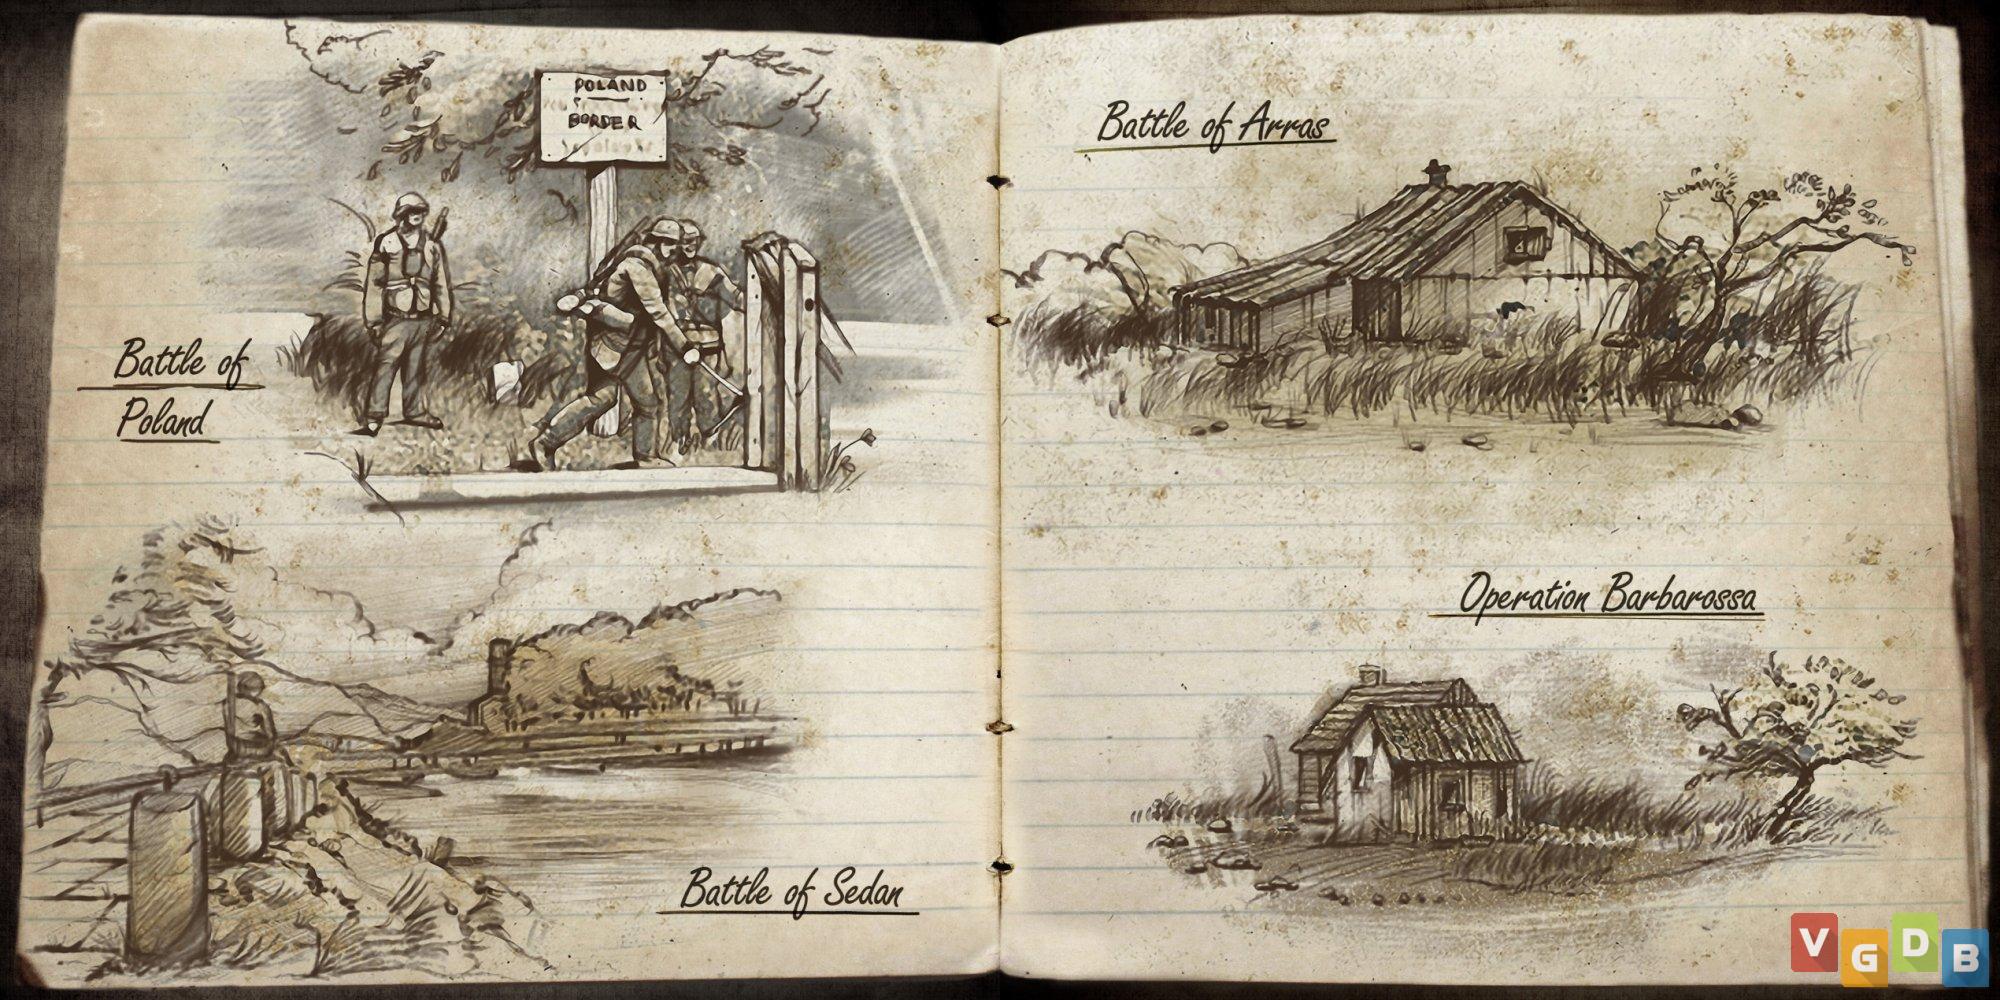 POLAND
BORDER
Battle of
Poland
Battle of Sedan
Battle of Arras
Operation Barbarossa
VGDB